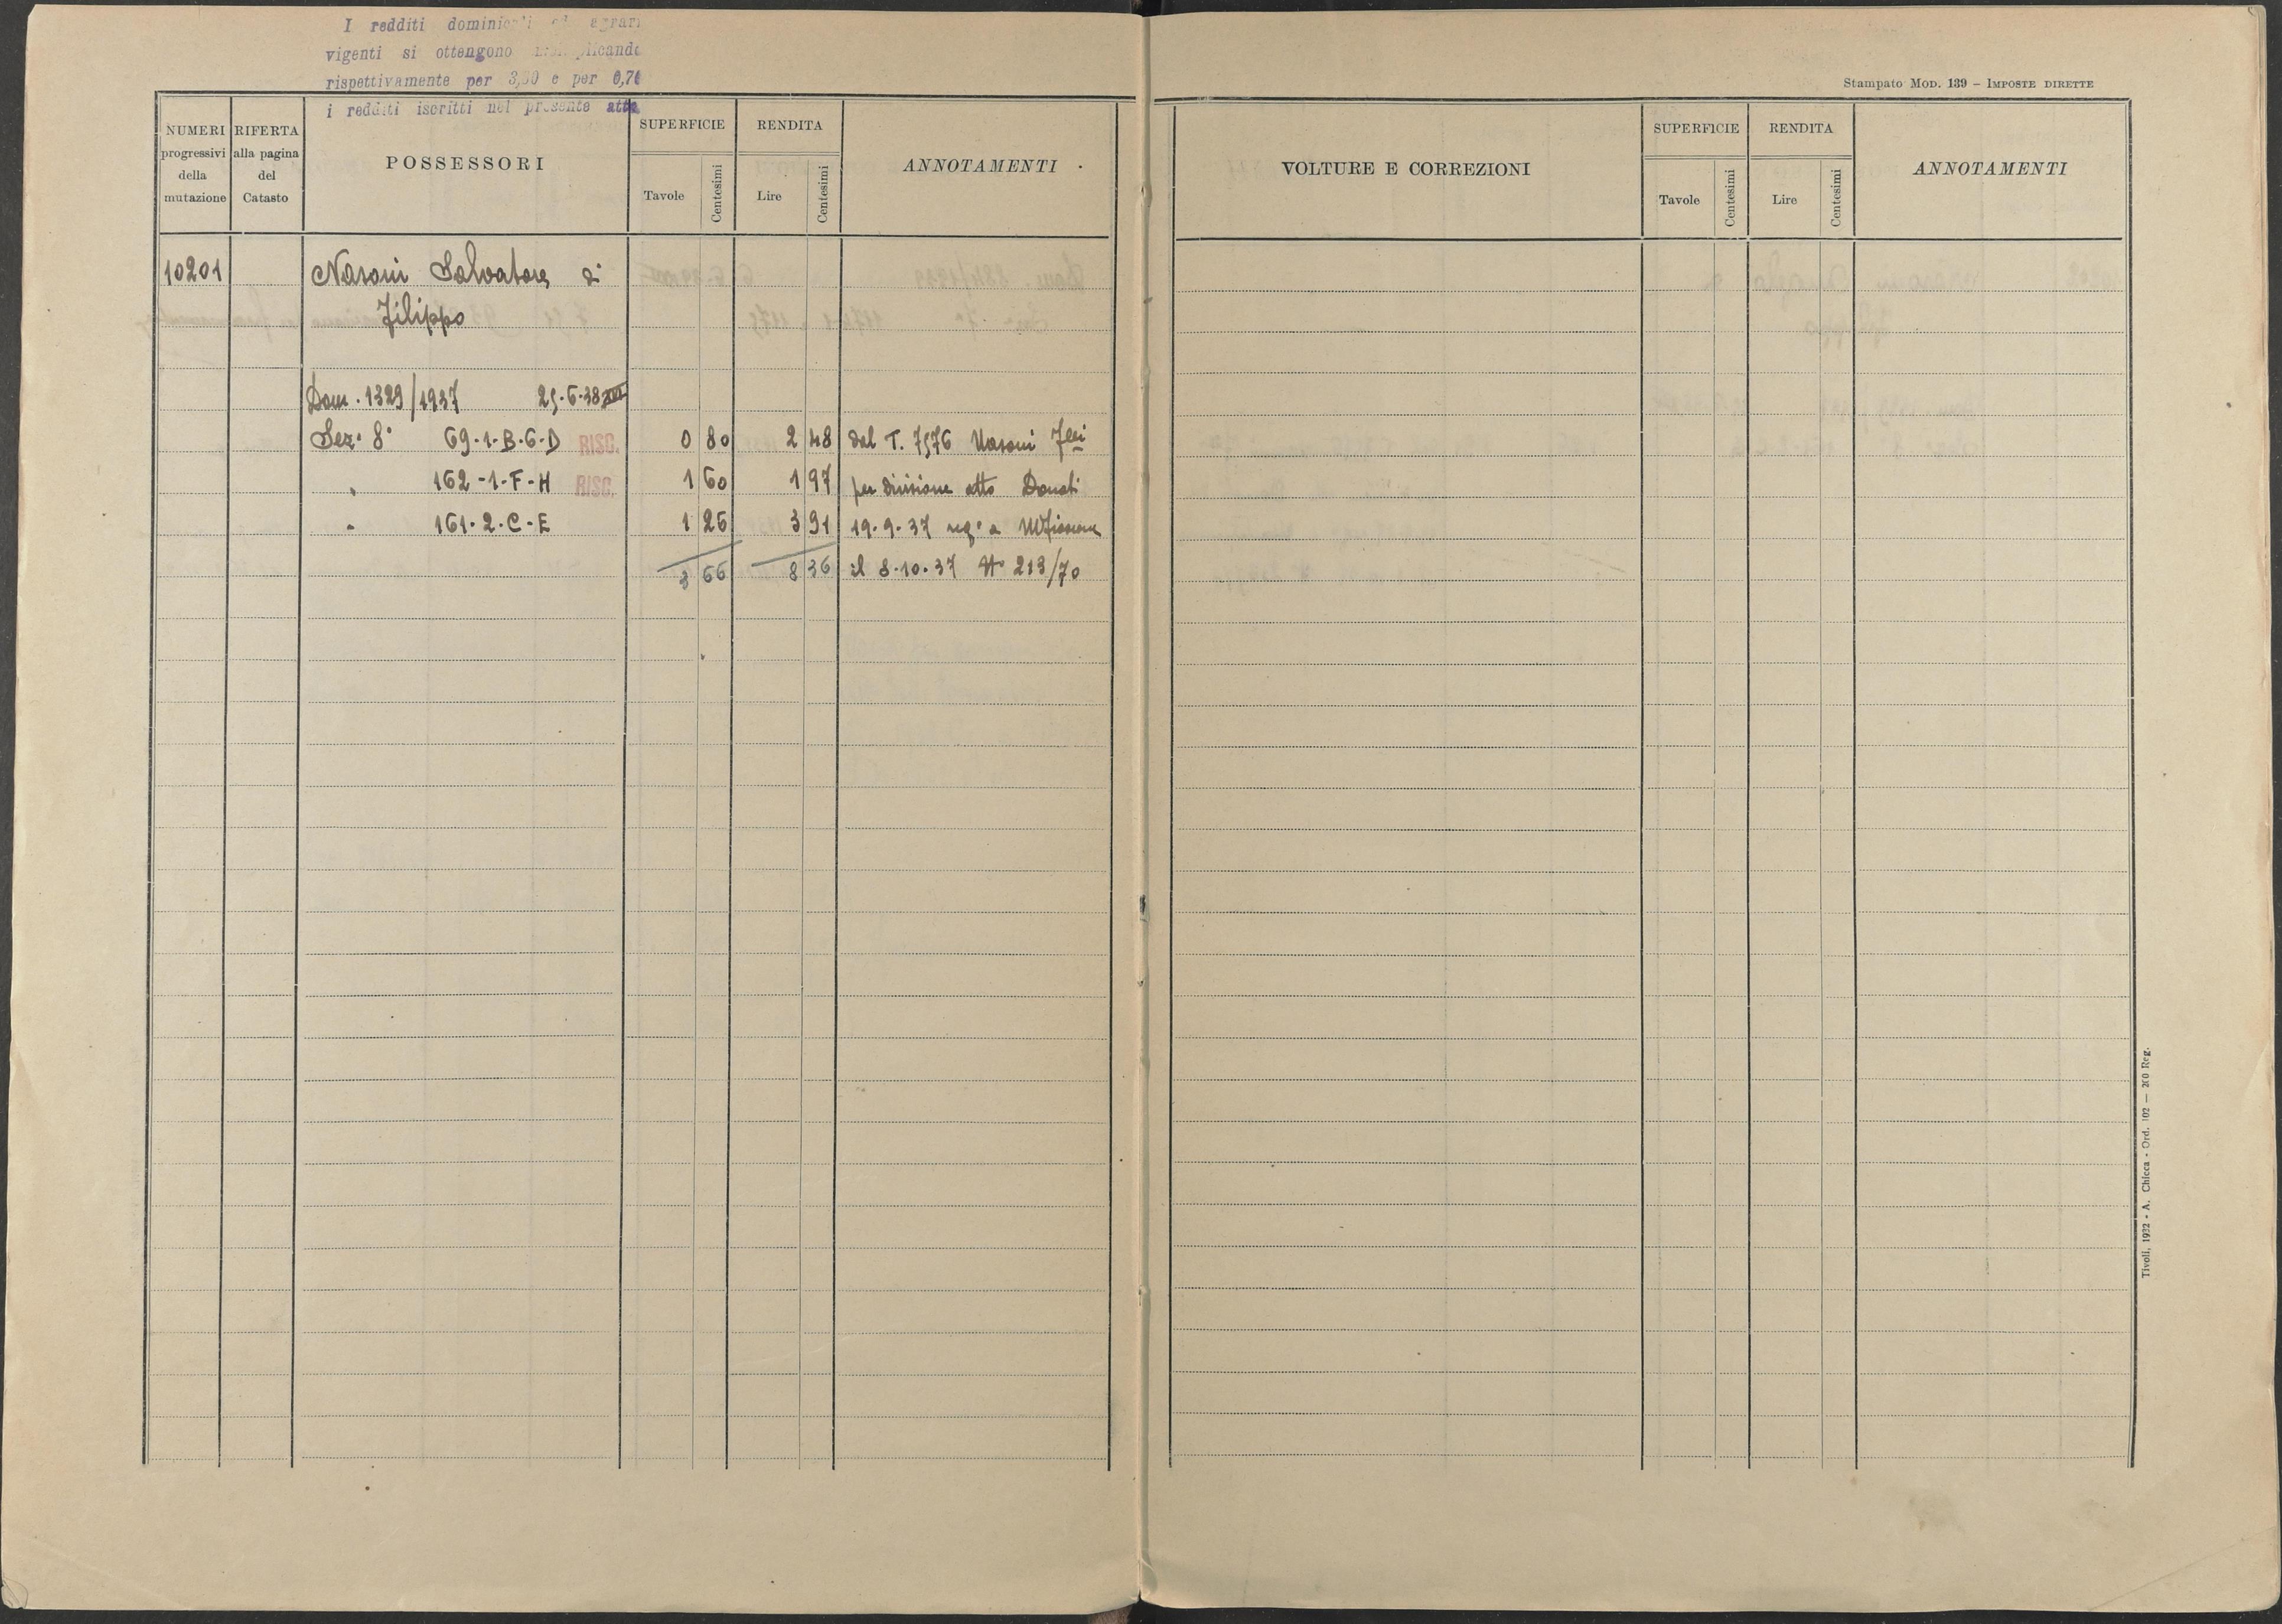 I redditi dominicali ed agrari
vigenti si ottengono moltiplicando
rispettivamente per 3,00 e per 0,70
i redditi iscritti nel presente atto
Stampato Mod. 139 – Imposte dirette
NUMERI progressivi della mutazione
RIFERTA alla pagina del Catasto
POSSESSORI
SUPERFICIE
Tavole
Centesimi
RENDITA
Lire
Centesimi
ANNOTAMENTI
VOLTURE E CORREZIONI
SUPERFICIE
Tavole
Centesimi
RENDITA
Lire
Centesimi
ANNOTAMENTI
10201 Nasoni Salvatore di
Filippo
Dom. 1329/1937 25.6.38 XVI
Sez. 8ª 69-1-B-6-D RISC. 0 80 2 48 dal T. 7576 Nasoni Flli
" 162-1-F-H RISC. 1 60 1 97 per divisione atto Donati
" 161-2-C-E 1 26 3 91 19-9-37 reg° a
3 66 8 36 il 8-10-37 N° 213/70
Tivoli, 1932 - A. Chicca - Ord. 102 — 200 Reg.